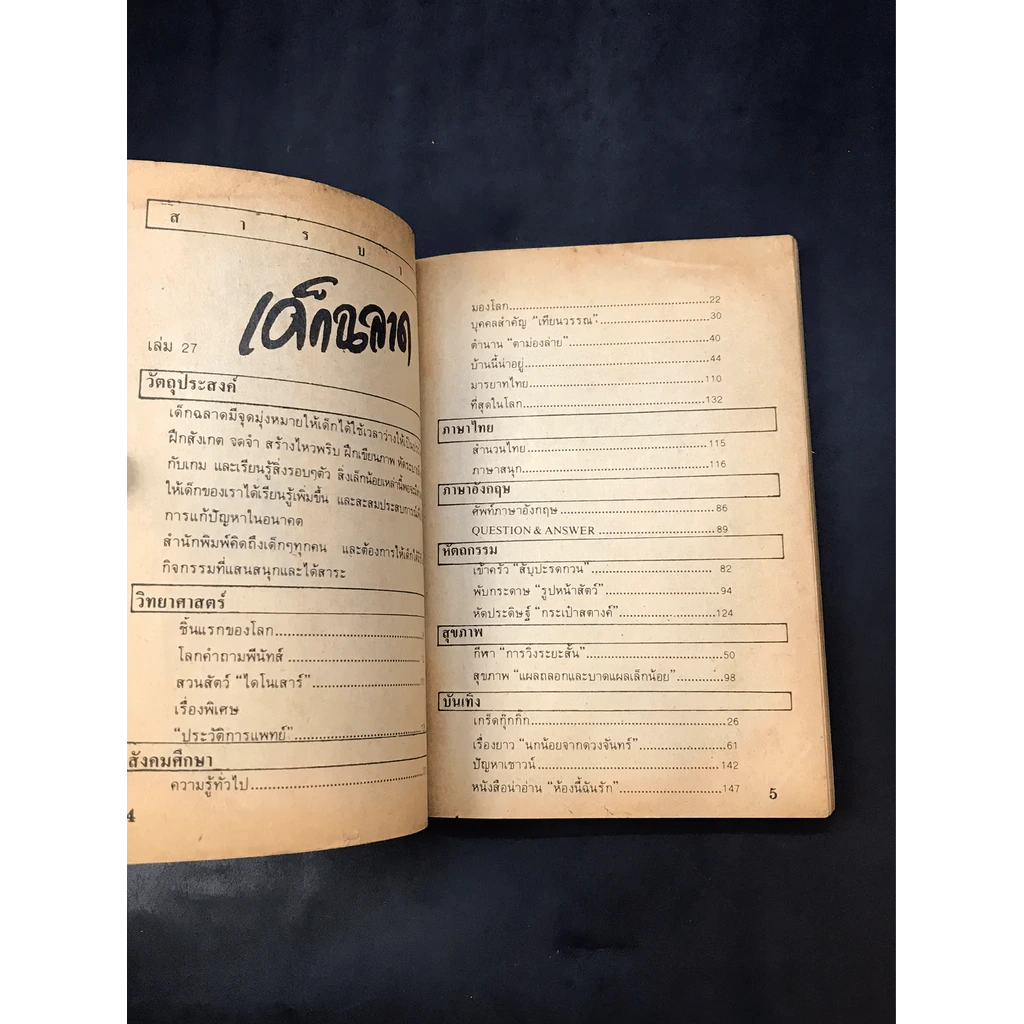 ส า ร บ า
เด็กฉลาด
เล่ม 27
วัตถุประสงค์
เด็กฉลาดมีจุดมุ่งหมายให้เด็กได้ใช้เวลาว่างให้เป็น
ฝึกสังเกต จดจำ สร้างไหวพริบ ฝึกเขียนภาพ
กับเกม และเรียนรู้สิ่งรอบๆตัว สิ่งเล็กน้อยเหล่านี้
ให้เด็กของเราได้เรียนรู้เพิ่มขึ้น และสะสมประสบการณ์
การแก้ปัญหาในอนาคต
สำนักพิมพ์คิดถึงเด็กๆทุกคน และต้องการให้เด็กได้
กิจกรรมที่แสนสนุกและได้สาระ
วิทยาศาสตร์
ชิ้นแรกของโลก
โลกคำถามพีนัทส์
สวนสัตว์ "ไดโนเสาร์"
เรื่องพิเศษ
"ประวัติการแพทย์"
สังคมศึกษา
ความรู้ทั่วไป
4
มองโลก 22
บุคคลสำคัญ "เทียนวรรณ" 30
ตำนาน "ตาม่องล่าย" 40
บ้านนี้น่าอยู่ 44
มารยาทไทย 110
ที่สุดในโลก 132
ภาษาไทย
สำนวนไทย 115
ภาษาสนุก 116
ภาษาอังกฤษ
ศัพท์ภาษาอังกฤษ 86
QUESTION & ANSWER 89
หัตถกรรม
เข้าครัว "สับปะรดกวน" 82
พับกระดาษ "รูปหน้าสัตว์" 94
หัดประดิษฐ์ "กระเป๋าสตางค์" 124
สุขภาพ
กีฬา "การวิ่งระยะสั้น" 50
สุขภาพ "แผลถลอกและบาดแผลเล็กน้อย" 98
บันเทิง
เกร็ดกุ๊กกิ๊ก 26
เรื่องยาว "นกน้อยจากดวงจันทร์" 61
ปัญหาเชาวน์ 142
หนังสือน่าอ่าน "ห้องนี้ฉันรัก" 147
5